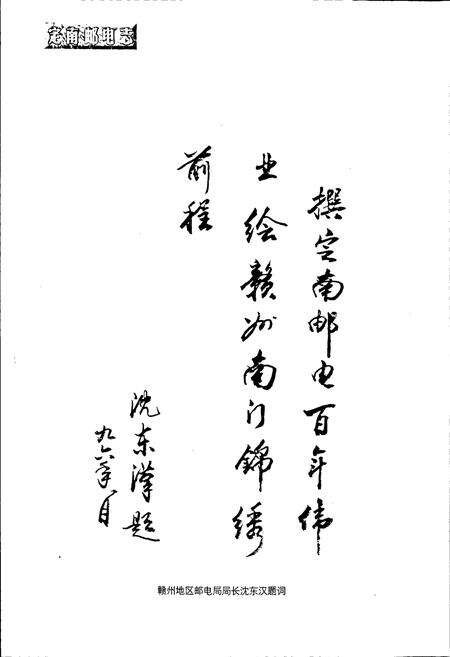 定南邮电志
撰定南邮电百年伟
业绘赣州南门锦绣
前程
沈东漢题
九六年八月
赣州地区邮电局局长沈东汉题词